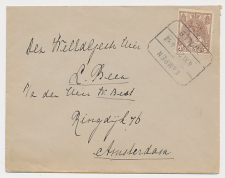 Den WelEdelGeb. Heer
L. Been
p/a den Heer W. Best
Ringdijk 76
Amsterdam